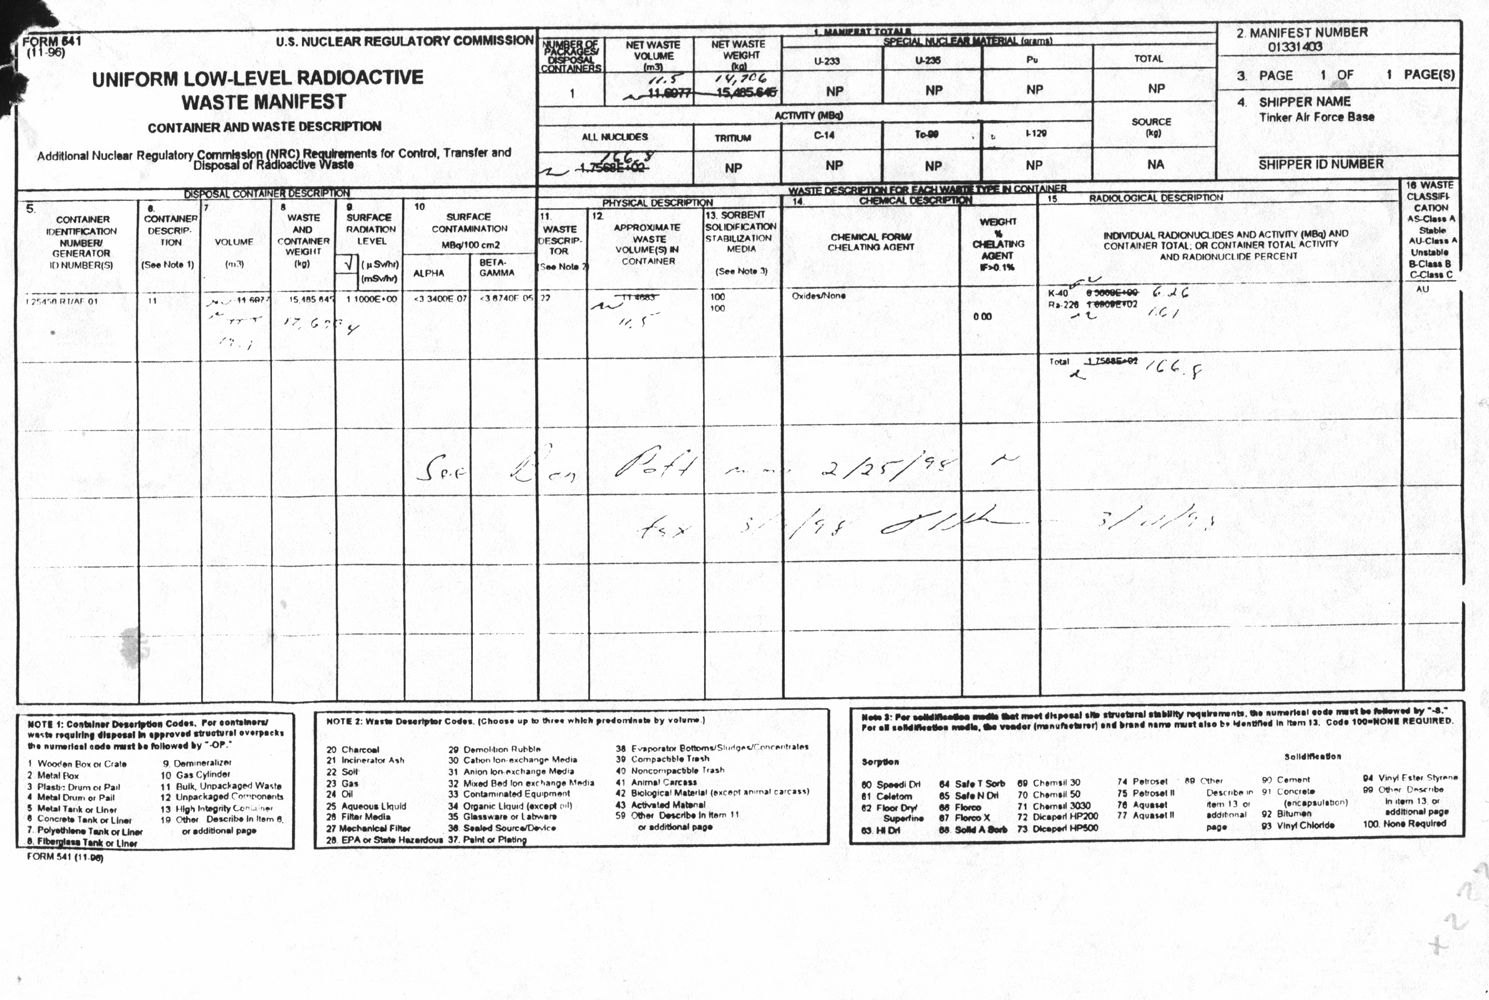 FORM 541
(11-96)
U.S. NUCLEAR REGULATORY COMMISSION
UNIFORM LOW-LEVEL RADIOACTIVE
WASTE MANIFEST
CONTAINER AND WASTE DESCRIPTION
Additional Nuclear Regulatory Commission (NRC) Requirements for Control, Transfer and
Disposal of Radioactive Waste
1. MANIFEST TOTALS
NUMBER OF
PACKAGES/
DISPOSAL
CONTAINERS
NET WASTE
VOLUME
(m3)
NET WASTE
WEIGHT
(kg)
SPECIAL NUCLEAR MATERIAL (grams)
U-233
U-235
Pu
TOTAL
11.5
14,706
1
11.6977
15,485.645
NP
NP
NP
NP
ACTIVITY (MBq)
ALL NUCLIDES
TRITIUM
C-14
Tc-99
I-129
SOURCE
(kg)
166.8
1.7568E+02
NP
NP
NP
NP
NA
2. MANIFEST NUMBER
01331403
3. PAGE 1 OF 1 PAGE(S)
4. SHIPPER NAME
Tinker Air Force Base
SHIPPER ID NUMBER
DISPOSAL CONTAINER DESCRIPTION
WASTE DESCRIPTION FOR EACH WASTE TYPE IN CONTAINER
PHYSICAL DESCRIPTION
CHEMICAL DESCRIPTION
5.
CONTAINER
IDENTIFICATION
NUMBER/
GENERATOR
ID NUMBER(S)
6.
CONTAINER
DESCRIP-
TION
(See Note 1)
7
VOLUME
(m3)
8
WASTE
AND
CONTAINER
WEIGHT
(kg)
9
SURFACE
RADIATION
LEVEL
√
(µSv/hr)
(mSv/hr)
10
SURFACE
CONTAMINATION
MBq/100 cm2
ALPHA
BETA-
GAMMA
11.
WASTE
DESCRIP-
TOR
(See Note 2)
12.
APPROXIMATE
WASTE
VOLUME(S) IN
CONTAINER
13. SORBENT
SOLIDIFICATION
STABILIZATION
MEDIA
(See Note 3)
14.
CHEMICAL FORM/
CHELATING AGENT
WEIGHT
%
CHELATING
AGENT
IF>0.1%
15
RADIOLOGICAL DESCRIPTION
INDIVIDUAL RADIONUCLIDES AND ACTIVITY (MBq) AND
CONTAINER TOTAL; OR CONTAINER TOTAL ACTIVITY
AND RADIONUCLIDE PERCENT
16 WASTE
CLASSIFI-
CATION
AS-Class A
Stable
AU-Class A
Unstable
B-Class B
C-Class C
11
11 6977
15,485 645
1 1000E+00
<3 3400E 07
<3 6740E 05
22
11 4683
11.5
100
100
Oxides/None
0 00
K-40
6.26
Ra-226
161
AU
Total 1 7568E+02 166.8
See
2/25/98
fax
NOTE 1: Container Description Codes. For containers/
waste requiring disposal in approved structural overpacks
the numerical code must be followed by "-OP."
1 Wooden Box or Crate
2 Metal Box
3 Plastic Drum or Pail
4 Metal Drum or Pail
5 Metal Tank or Liner
6 Concrete Tank or Liner
7. Polyethlene Tank or Liner
8. Fiberglass Tank or Liner
9. Demineralizer
10 Gas Cylinder
11 Bulk, Unpackaged Waste
12 Unpackaged Components
13 High Integrity Container
19 Other Describe in Item 6,
or additional page
NOTE 2: Waste Descriptor Codes. (Choose up to three which predominate by volume.)
20 Charcoal
21 Incinerator Ash
22 Soil
23 Gas
24 Oil
25 Aqueous Liquid
26 Filter Media
27 Mechanical Filter
28 EPA or State Hazardous
29 Demolition Rubble
30 Cation Ion-exchange Media
31 Anion Ion-exchange Media
32 Mixed Bed Ion-exchange Media
33 Contaminated Equipment
34 Organic Liquid (except oil)
35 Glassware or Labware
36 Sealed Source/Device
37. Paint or Plating
38 Evaporator Bottoms/Sludges/Concentrates
39 Compactible Trash
40 Noncompactible Trash
41 Animal Carcass
42 Biological Material (except animal carcass)
43 Activated Material
59 Other Describe in Item 11
or additional page
Note 3: For solidification media that meet disposal site structural stability requirements, the numerical code must be followed by "-S."
For all solidification media, the vendor (manufacturer) and brand name must also be identified in Item 13. Code 100=NONE REQUIRED.
Sorption
60 Speedi Dri
61 Celetom
62 Floor Dry/
Superfine
63. Hi Dri
64 Safe T Sorb
65 Safe N Dri
66 Florco
67 Florco X
68. Solid A Sorb
69 Chemsil 30
70 Chemsil 50
71 Chemsil 3030
72 Dicaperl HP200
73 Dicaperl HP500
74 Petroset
75 Petroset II
76 Aquaset
77 Aquaset II
89 Other
Describe in
item 13 or
additional
page
Solidification
90 Cement
91 Concrete
(encapsulation)
92 Bitumen
93 Vinyl Chloride
94 Vinyl Ester Styrene
99 Other Describe
in item 13 or
additional page
100. None Required
FORM 541 (11-96)